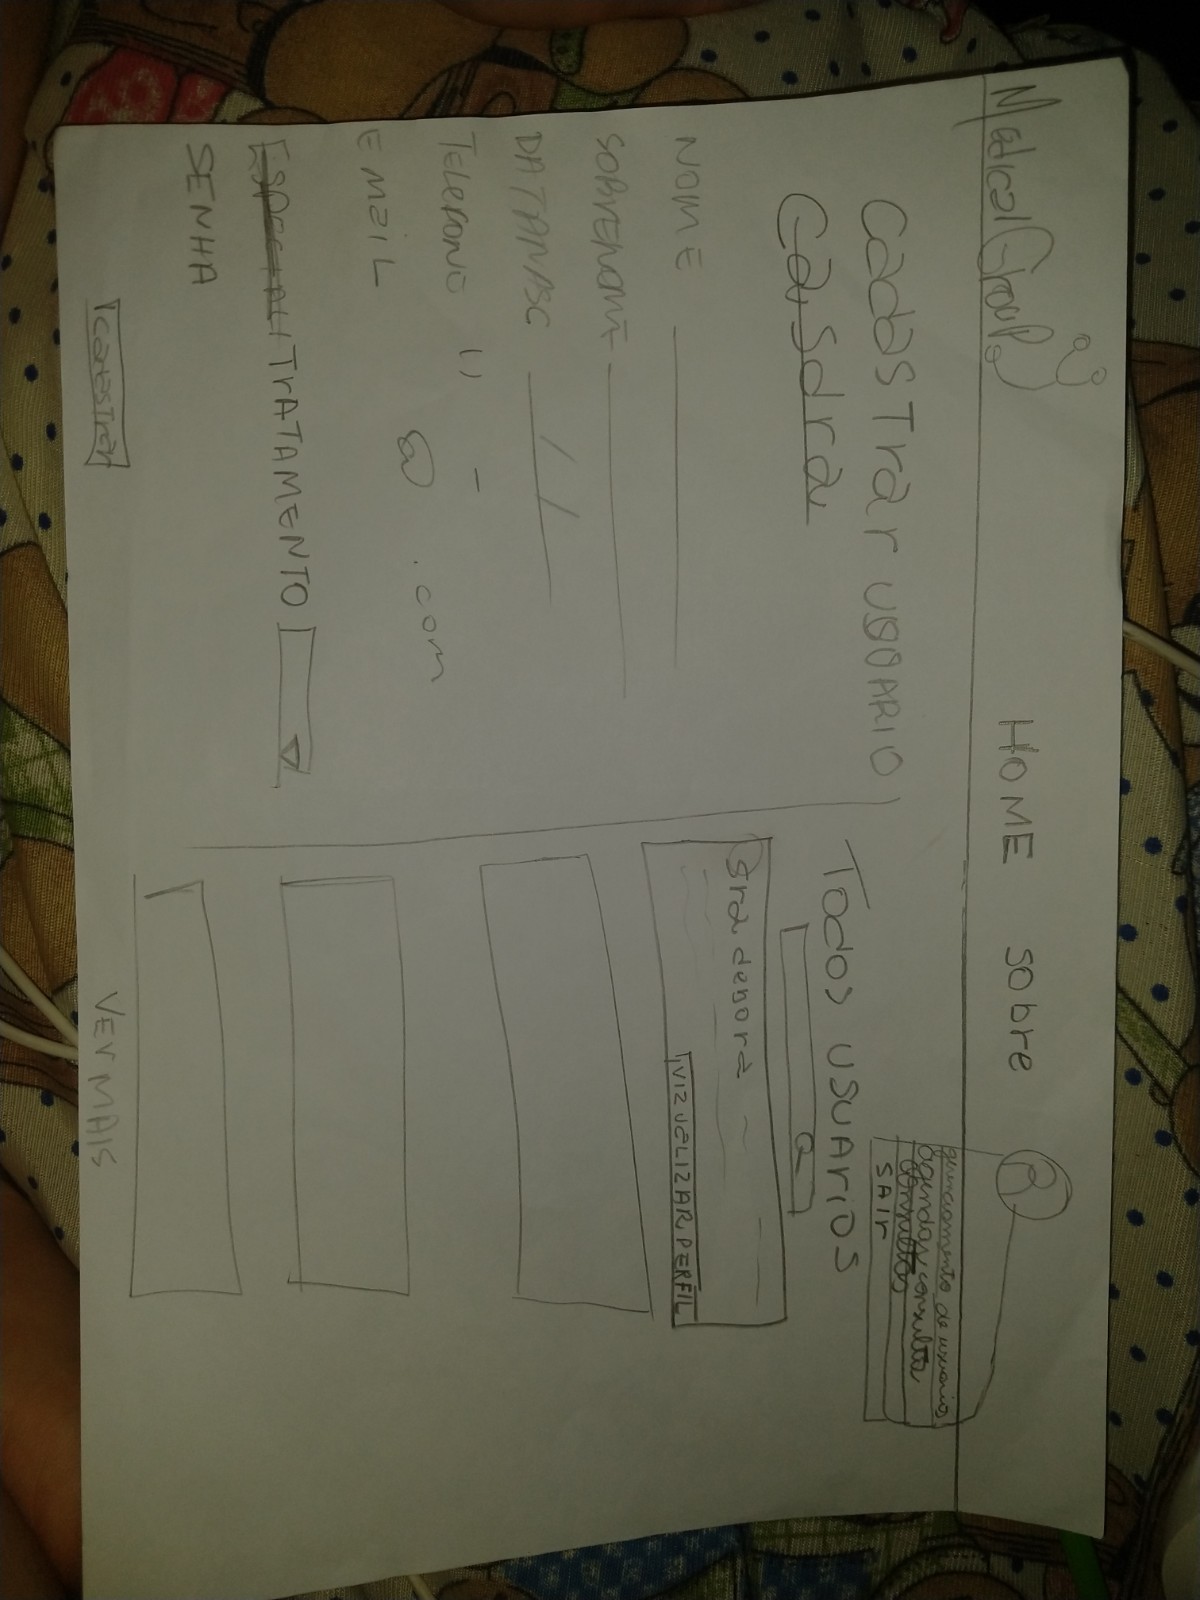 Medical Group
HOME sobre
gerenciamento de usuarios
agendar consulta
SAIr
CadasTrar USUARIO
NOME
SOBrENOME
DATANASC / /
TeleFONO () -
EMaiL @ .com
TrATAMENTO
SENHA
cadasTrar
Todos USUArIOS
Q
VIZUELIZAR PERFIL
VEr MAIS